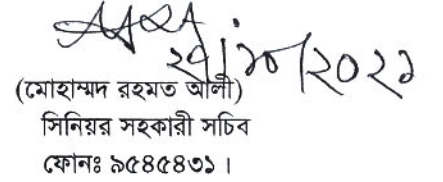 ২৭/১০/২০২১
(মোহাম্মদ রহমত আলী)
সিনিয়র সহকারী সচিব
ফোনঃ ৯৫৪৫৪৩১।